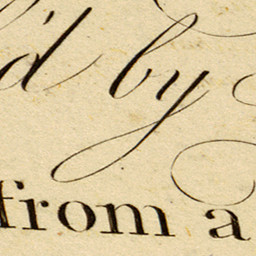 'd by
from a